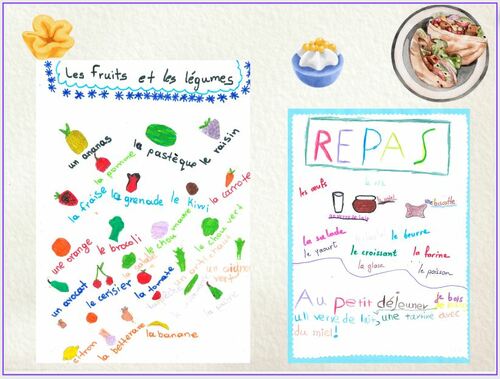 Les fruits et les légumes
un ananas
la pomme
la pastèque
le raisin
la fraise
la grenade
le kiwi
la carotte
une orange
le brocoli
la salade
le chou
le chou vert
un avocat
le cerisier
la tomate
citron
la betterave
la banane
REPAS
le riz
les œufs
un verre de lait
le miel
une biscotte
la salade
le beurre
le yaourt
le croissant
la farine
la glace
le poisson
Au petit déjeuner je bois
un verre de lait, une tartine avec
du miel!